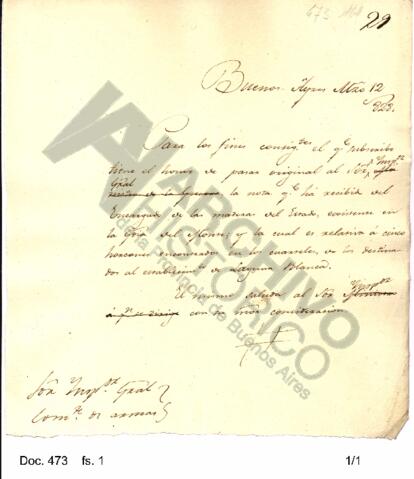 673 29
Buenos Ayres Mzo 12
823.
Para los fines consigtes el qe subscribe
tiene el honor de pasar original al Sor Inspor
Gral la nota qe ha recibido del
Encargado de las maderas del Estado, existente en
la del Monte; y la cual es relativa á cinco
horcones encontrados en los cuarteles, de los destina
dos al establecimto de Laguna Blanca.
El mismo saluda al Sor Inspor
á qn se dirige con su mor consideracion.
Sor Inspor Gral y
Comte de armas
ARCHIVO
HISTÓRICO
Provincia de Buenos Aires
Doc. 473 fs. 1 1/1